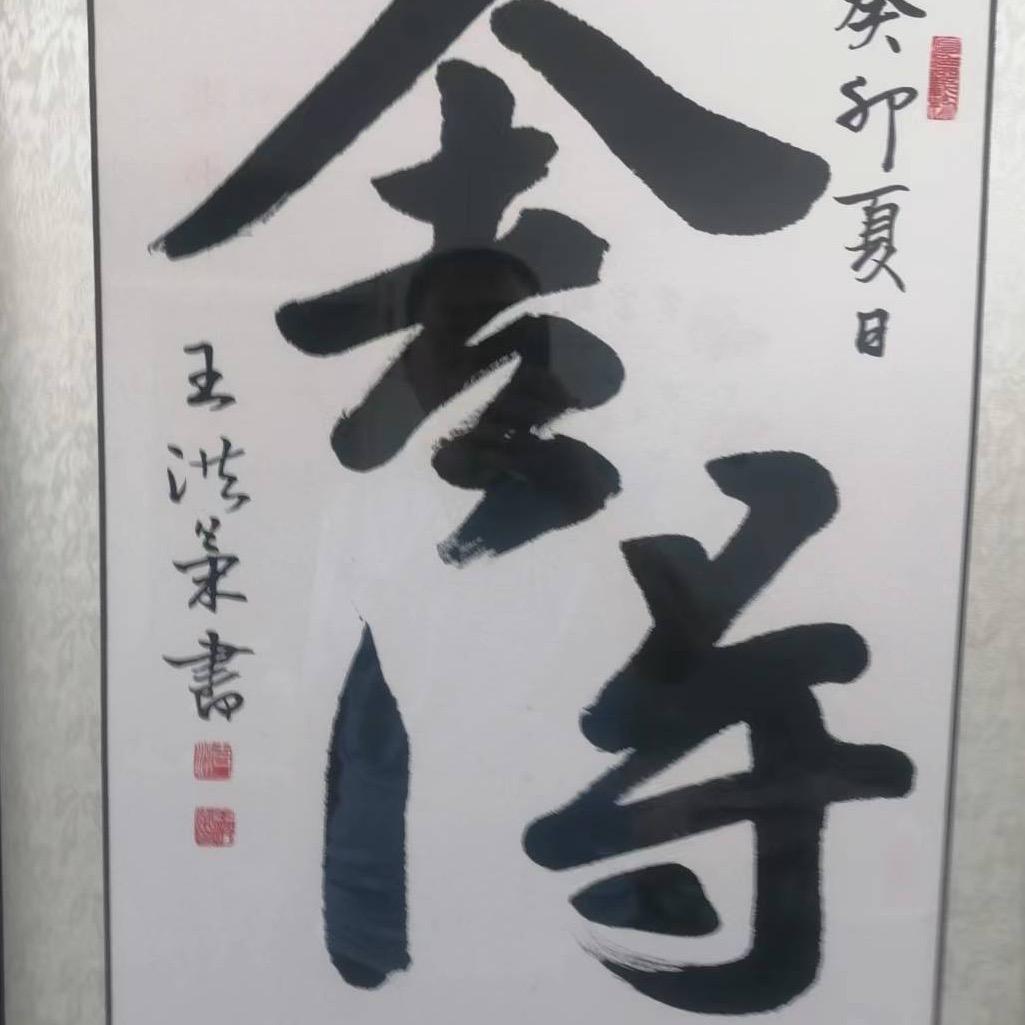 癸卯夏日
舍得
王洪策書